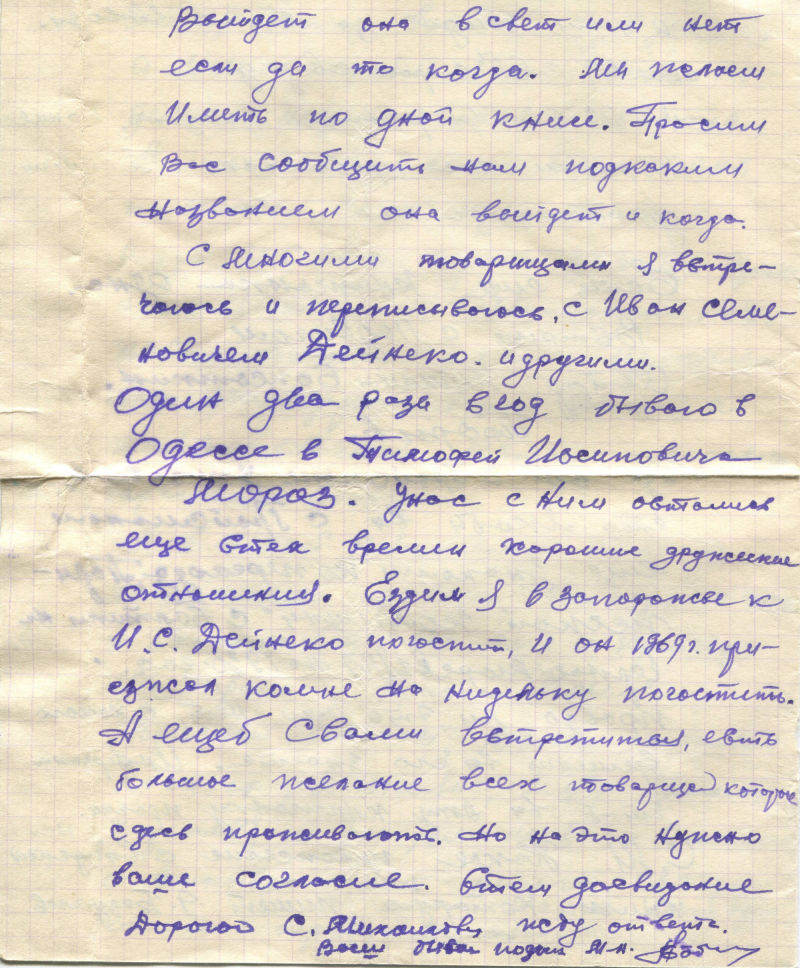 Войдет она в свет или нет
если да то когда. Мы желаем
Иметь по дной книге. Просим
Вас сообщить нам подкаким
названием она войдет и когда.
С многими товарищами я встре-
чаюсь и переписываюсь, с Иван Семе-
новичем Дейнеко. и другими.
Один два раза вгод бываю в
Одессе в Тимофей Иосиповича
Мороз. Унас с ним остались
еще стех времен хорошие дружеские
отношения. Ездим я в Запорожье к
И.С. Дейнеко погостит, и он 1969г. при-
езжал комне на нидельку погостить.
А ещеб Свами встретится, есть
большое желание всех товарищей которые
сдесь проживають. Но на это нужно
ваше согласие. Стем досвидание
Дорогой С. Михайлович жду ответа.
Ваш бывш М.А.